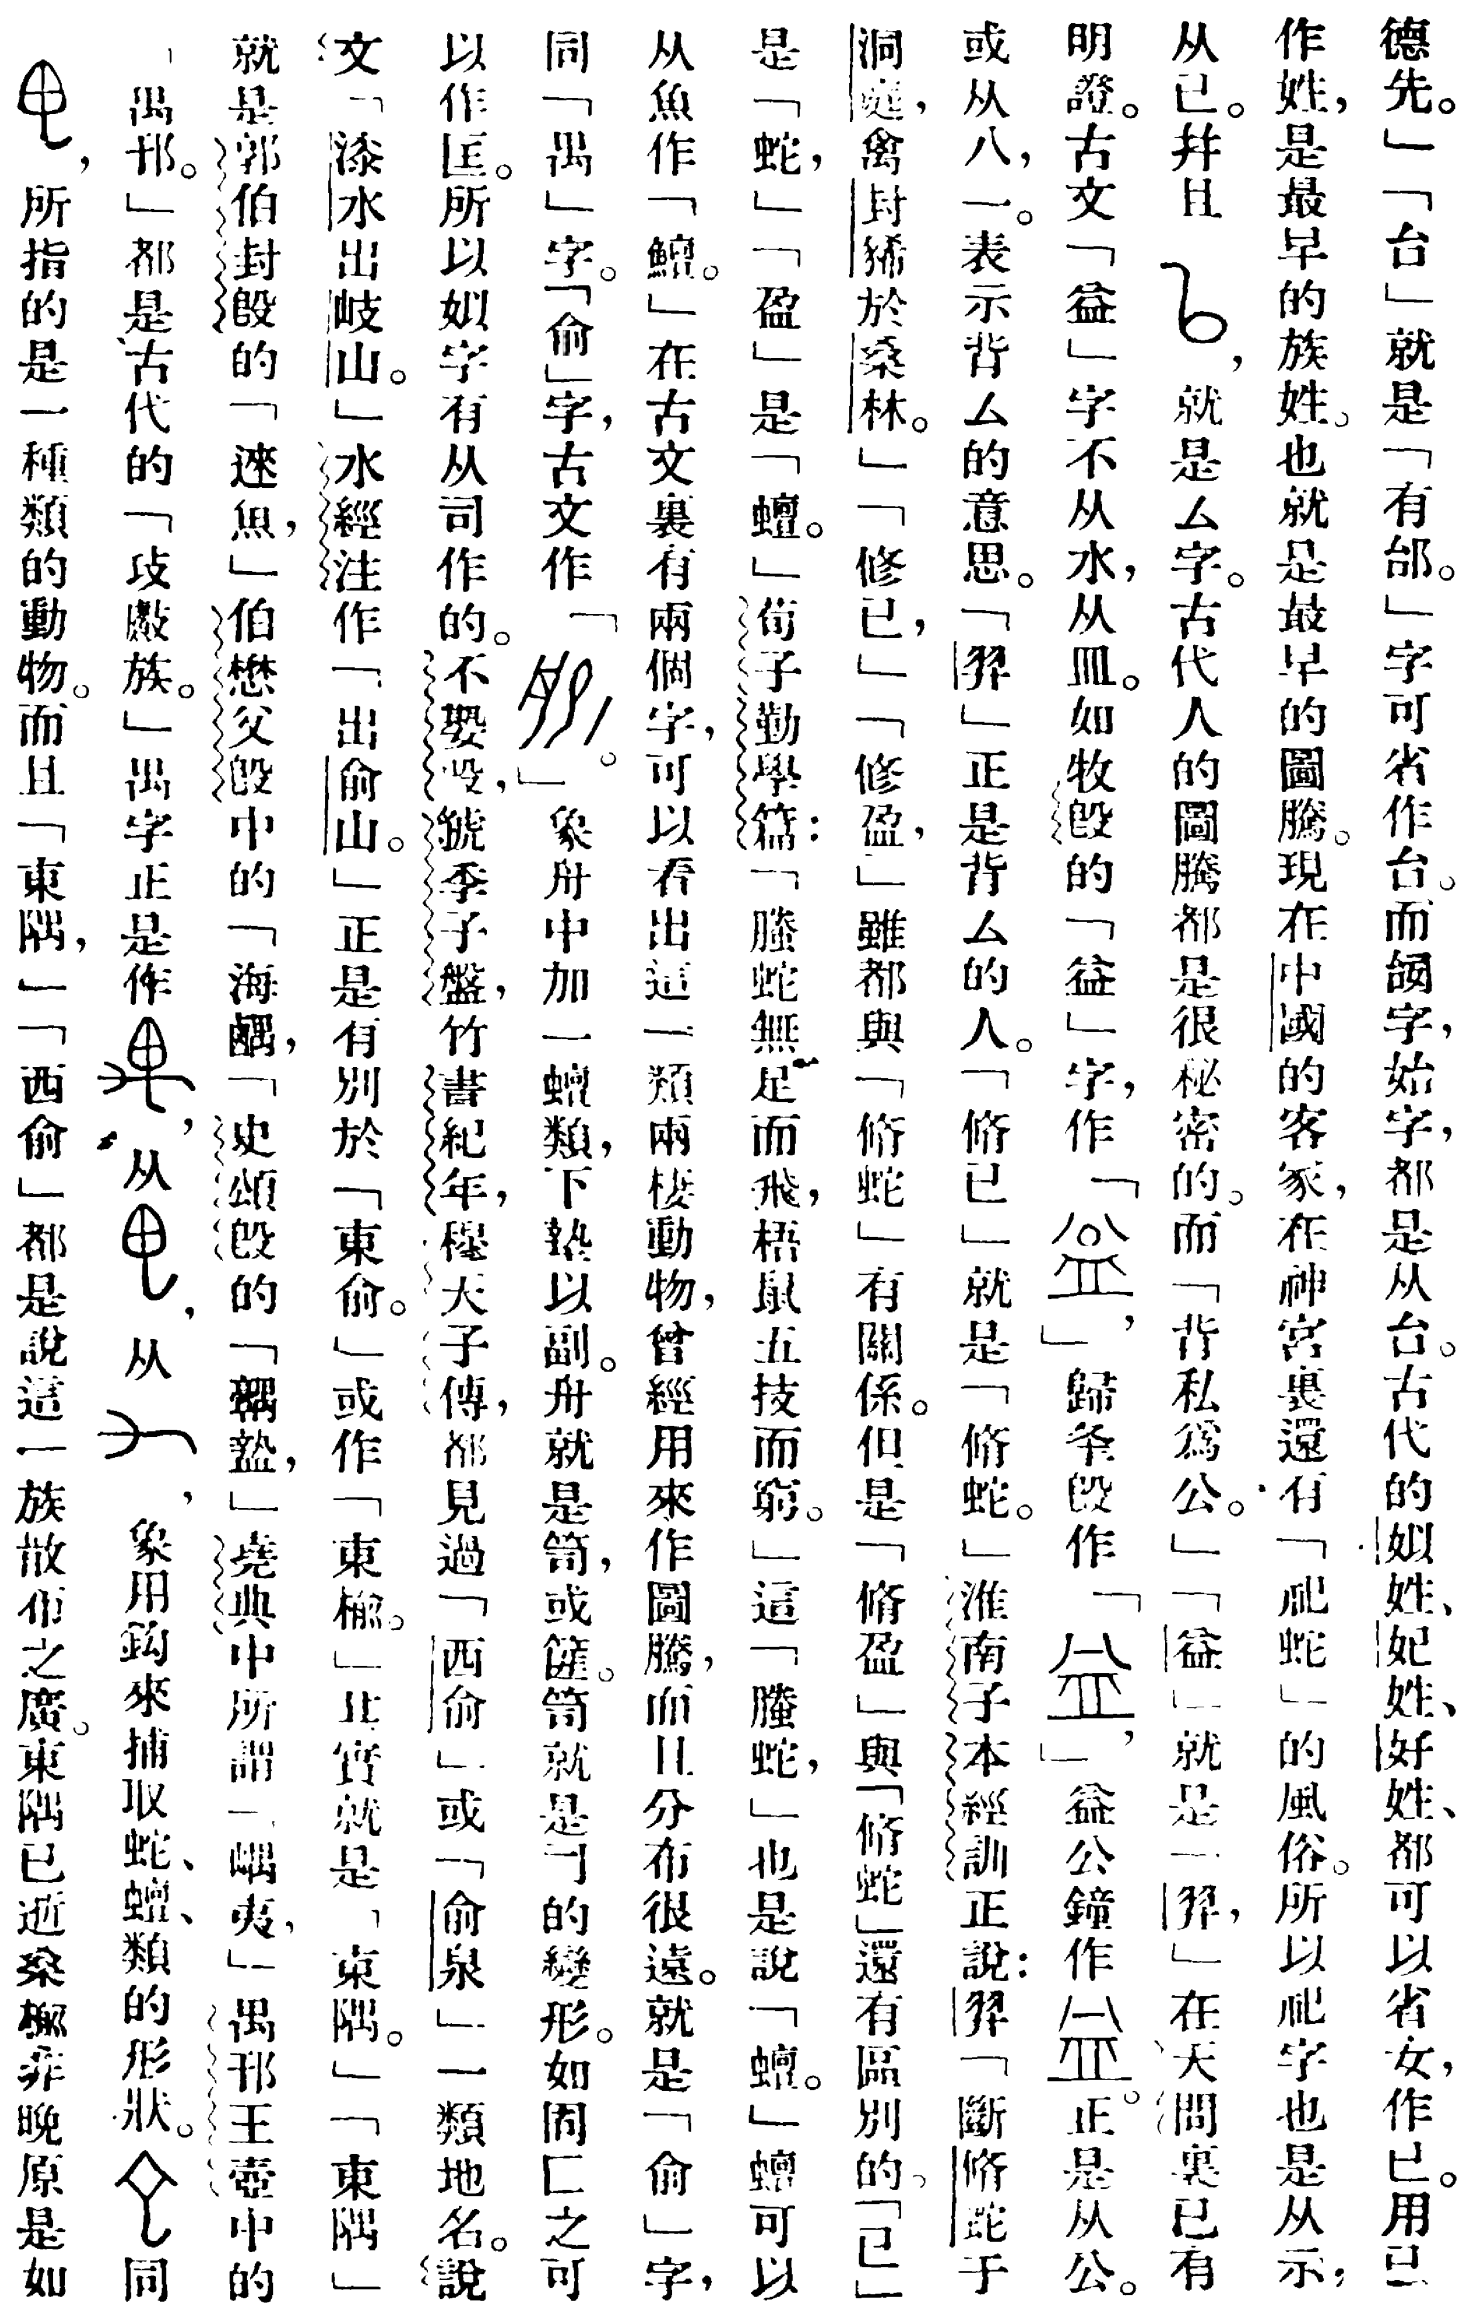 德先。」「台」就是「有邰。」字可省作台。而𩒨字,始字,都是从台。古代的姒姓、妃姓、好姓、都可以省女,作已。用已
作姓,是最早的族姓。也就是最早的圖騰。現在中國的客家,在神宮裏還有「祀蛇」的風俗。所以祀字也是从示,
从已。幷且,就是厶字。古代人的圖騰都是很秘密的。而「背私爲公。」「益」就是「羿,」在天問裏已有
明證。古文「益」字不从水,从皿。如牧𣪘的「益」字,作「」,歸夆𣪘作「」,益公鐘作。正是从公。
或从八,一。表示背厶的意思。「羿」正是背厶的人。「脩已」就是「脩蛇。」淮南子本經訓正說:羿「斷脩蛇于
洞庭,禽封豨於桑林。」「修已,」「修盈,」雖都與「脩蛇」有關係。但是「脩盈」與「脩蛇」還有區別的。「已」
是「蛇,」「盈」是「蟺。」荀子勤學篇:「螣蛇無足而飛,梧鼠五技而窮。」這「螣蛇,」也是說「蟺。」蟺可以
从魚作「鱣。」在古文裏有兩個字,可以看出這一類兩棲動物,曾經用來作圖騰,而且分布很遠。就是「俞」字,
同「禺」字。「俞」字,古文作「。」象舟中加一蟺類,下墊以副。舟就是笥,或簏。笥就是𠃌的變形。如圄匚之可
以作匡。所以姒字有从司作的。不𡠗𣪘,虢季子盤,竹書紀年,穆天子傳,都見過「西俞」或「俞泉」一類地名。說
文「漆水出岐山。」水經注作「出俞山。」正是有別於「東俞。」或作「東楡。」其實就是「東隅。」「東隅」
就是郭伯封𣪘的「逨魚,」伯懋父𣪘中的「海𪉹,」史頌𣪘的「𩫨盩,」堯典中所謂「嵎夷,」禺邗王壺中的
「禺邗。」都是古代的「攱𢿢族。」禺字正是作,从,从,象用鈎來捕取蛇、蟺、類的形狀。同
,所指的是一種類的動物。而且「東隅,」「西俞」都是說這一族散佈之廣。東隅已逝桑楡非晚原是如